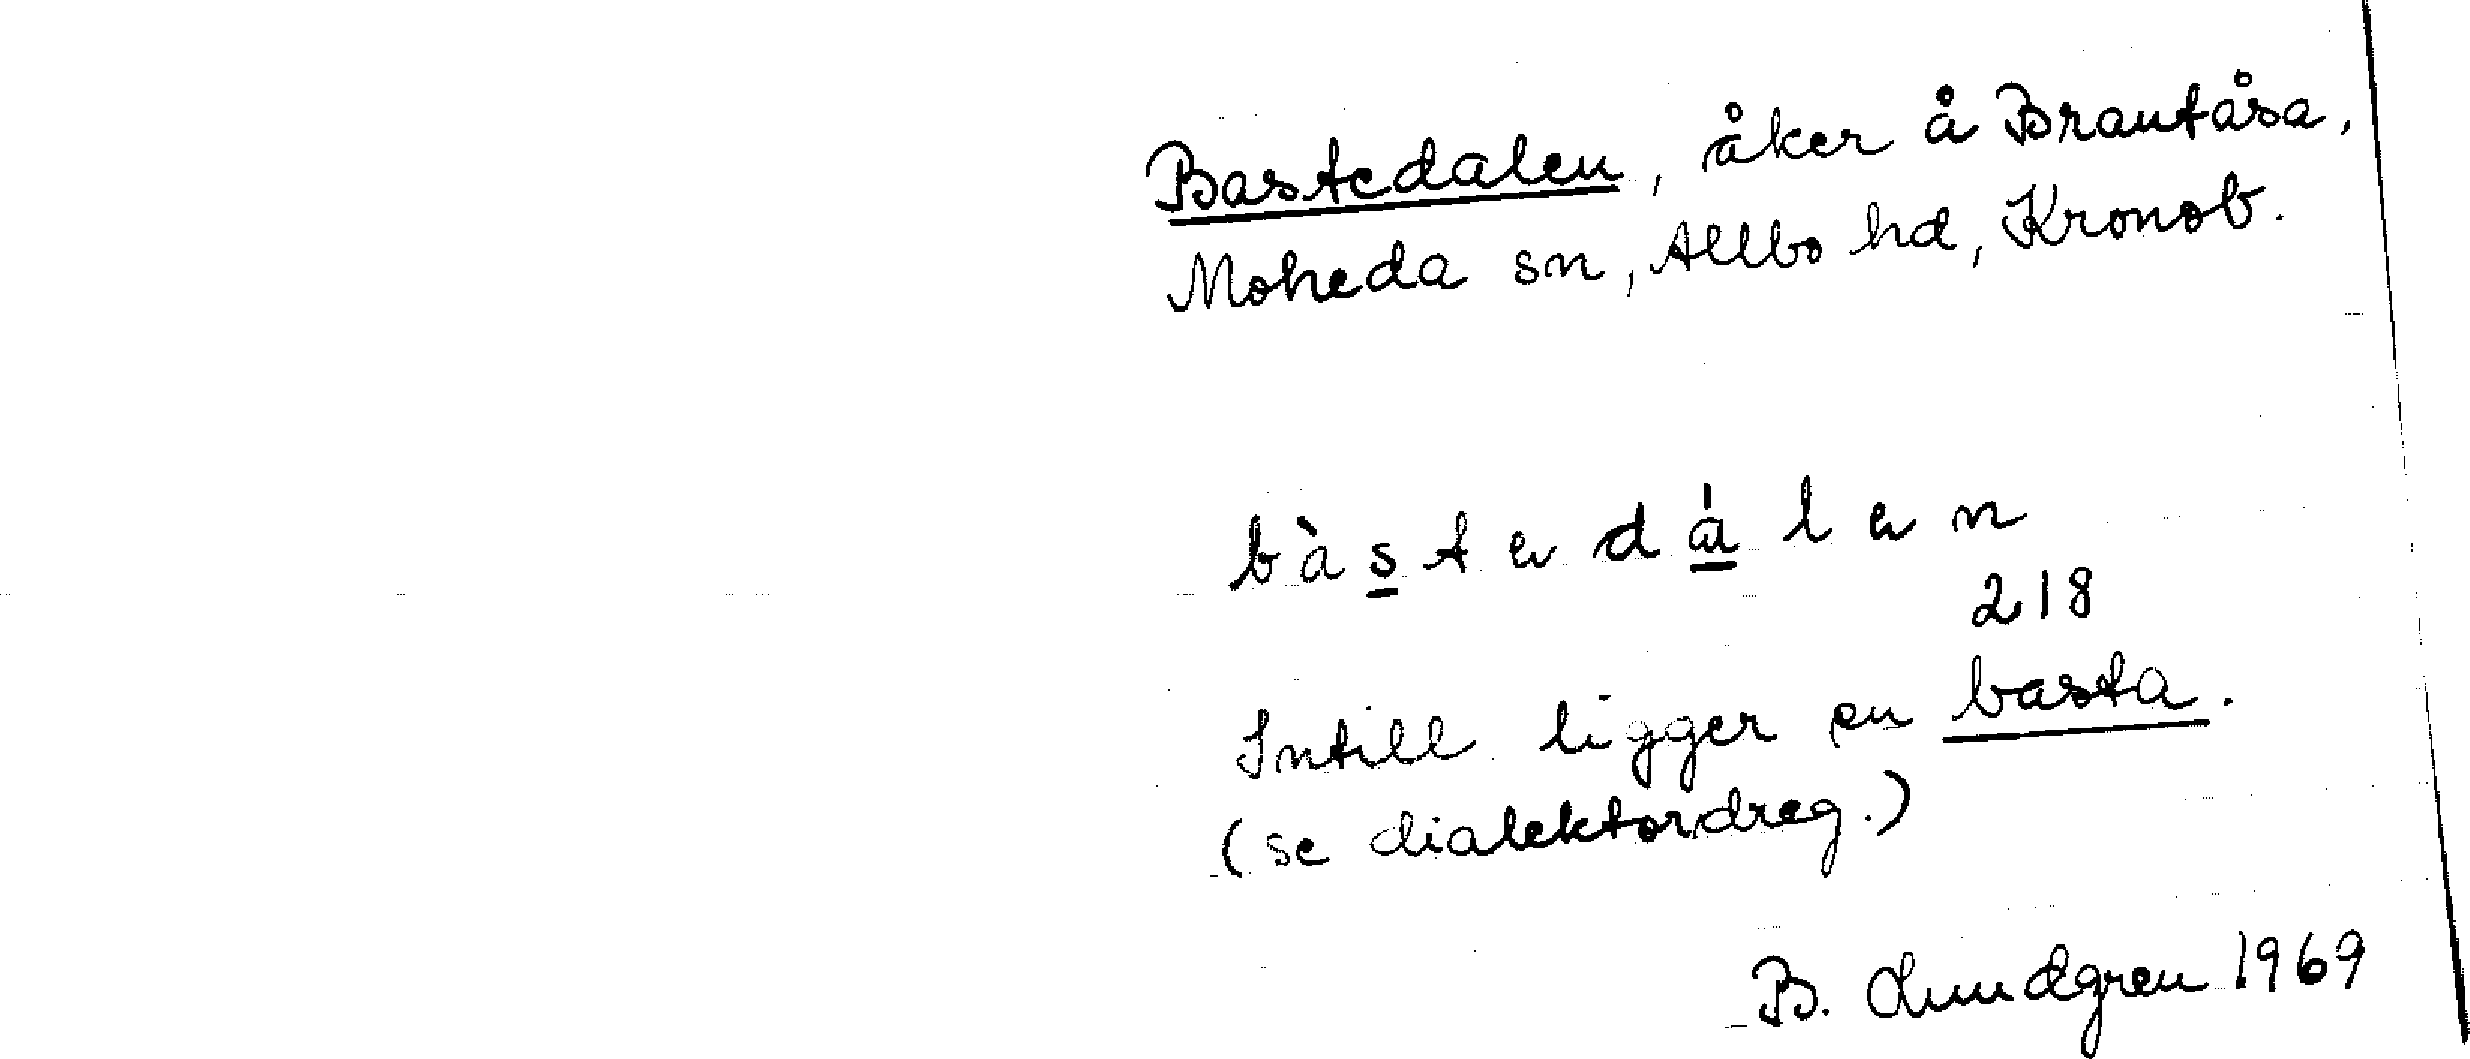 Bastedalen, åker å Brautåsa,
Moheda sn, Allbo hd, Kronob.
bàstedálen
218
Intill ligger en basta.
(se dialektordreg.)
B. Lundgren 1969